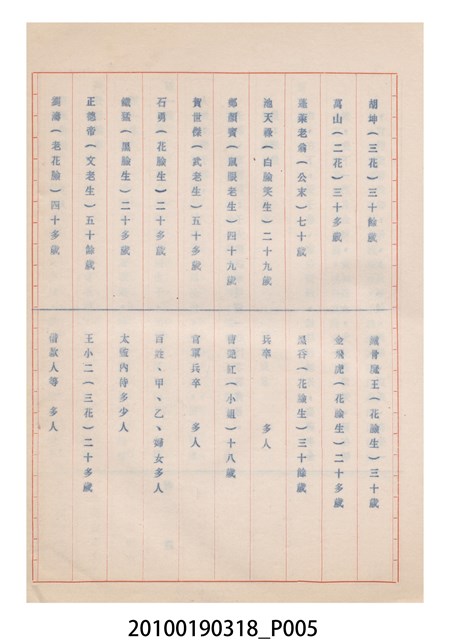 胡坤(三花)三十餘歲
萬山(二花)三十多歲
蓬萊老翁(公末)七十歲
池天祿(白臉笑生)二十九歲
鄭顏賓(鼠眼老生)四十九歲
賀世傑(武老生)五十多歲
石勇(花臉生)二十多歲
鐵猛(黑臉生)二十多歲
正德帝(文老生)五十餘歲
劉瑾(老花臉)四十多歲
鐵骨魔王(花臉生)三十歲
金飛虎(花臉生)二十多歲
黑谷(花臉生)三十餘歲
兵卒 多人
曹艷紅(小姐)十八歲
官軍兵卒 多人
百姓、甲、乙、婦女多人
太監內侍多少人
王小二(三花)二十多歲
借款人等 多人
20100190318_P005